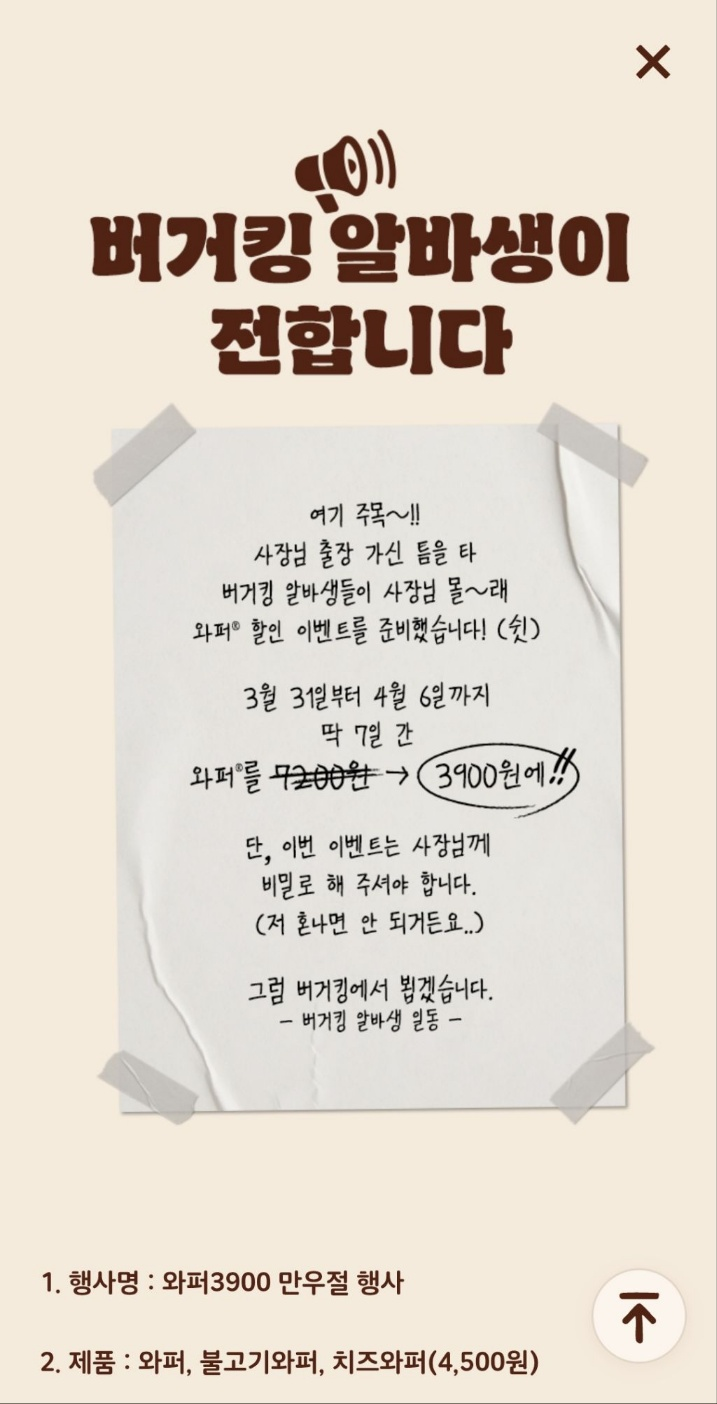 버거킹 알바생이
전합니다
여기 주목~!!
사장님 출장 가신 틈을 타
버거킹 알바생들이 사장님 몰~래
와퍼® 할인 이벤트를 준비했습니다! (쉿)
3월 31일부터 4월 6일까지
딱 7일 간
와퍼®를 7200원 → 3900원에!!
단, 이번 이벤트는 사장님께
비밀로 해 주셔야 합니다.
(저 혼나면 안 되거든요..)
그럼 버거킹에서 뵙겠습니다.
- 버거킹 알바생 일동 -
1. 행사명 : 와퍼3900 만우절 행사
2. 제품 : 와퍼, 불고기와퍼, 치즈와퍼(4,500원)